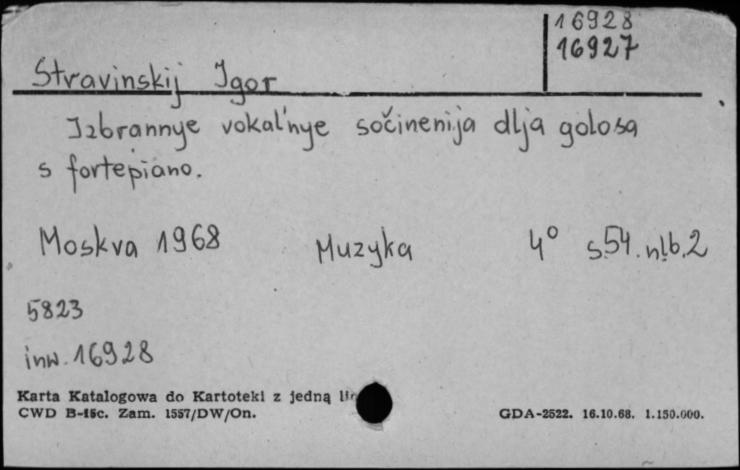 16928
16927
Stravinskij Igor
Izbrannye vokal'nye sočinenija dlja golosa
s fortepiano.
Moskva 1968 Muzyka 4° s.54. nlb.2
5823
inw. 16928
Karta Katalogowa do Kartoteki z jedną
CWD B-15c. Zam. 1557/DW/On. GDA-2522. 16.10.68. 1.150.000.